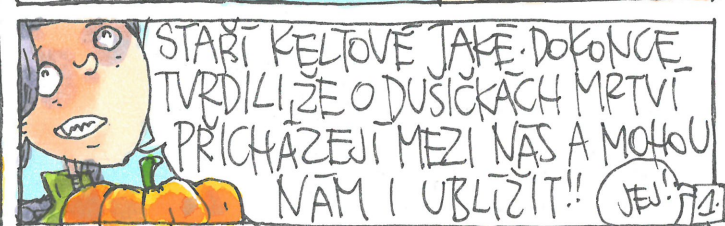 STAŘÍ KELTOVÉ JAKÉ. DOKONCE
TVRDILI, ŽE O DUSIČKÁCH MRTVÍ
PŘICHÁZEJÍ MEZI NÁS A MOHOU
NÁM I UBLÍŽIT!!
JEJ!
1.